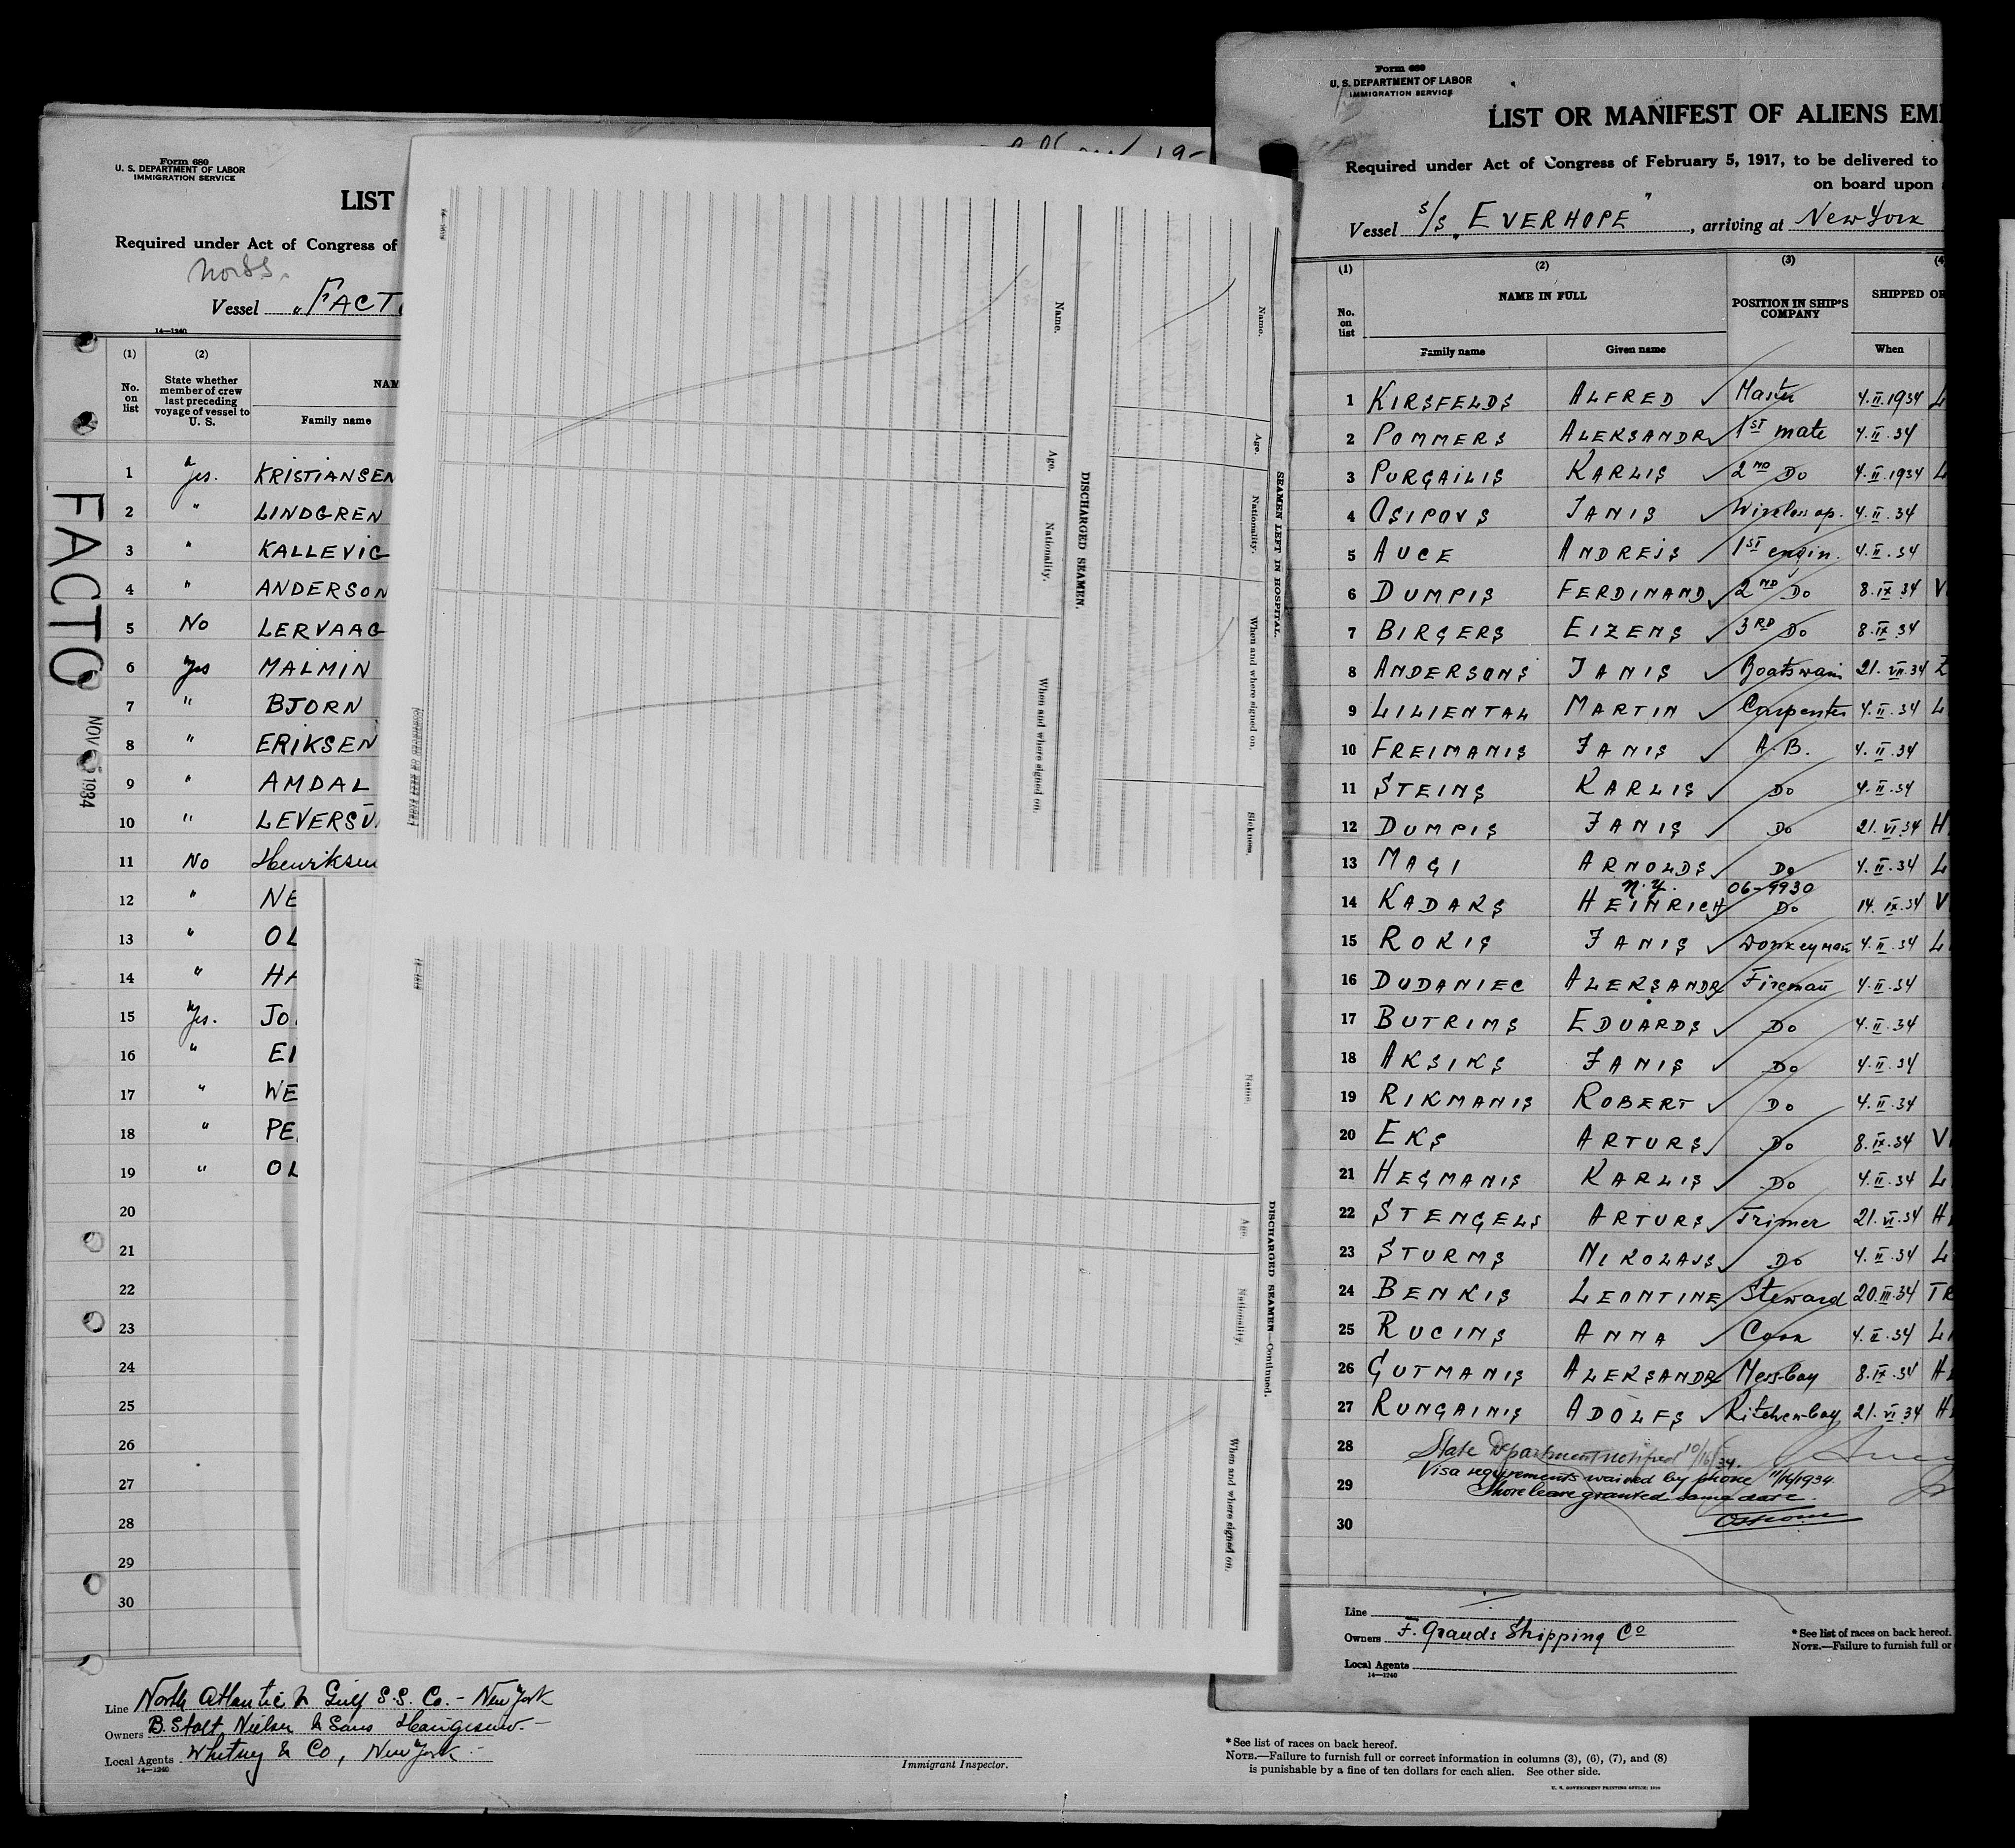 Form 680
U. S. DEPARTMENT OF LABOR
IMMIGRATION SERVICE
LIST
Required under Act of Congress of
Vessel "FACT
14—1240
(1) (2)
No. on list
State whether member of crew last preceding voyage of vessel to U. S.
NAM
Family name
1 yes. KRISTIANSEN
2 " LINDGREN
3 " KALLEVIG
4 " ANDERSON
5 No LERVAAG
6 yes MALMIN
7 " BJORN
8 " ERIKSEN
9 " AMDAL
10 " LEVERSU
11 No Henriksen
12 " NE
13 " OL
14 " HA
15 yes. JO
16 " EI
17 " WE
18 " PE
19 " OL
20
21
22
23
24
25
26
27
28
29
30
FACTO
NOV 1934
Line North Atlantic & Gulf S.S. Co. - New York
Owners B. Stolt Nielsen & Sons
Local Agents Whitney & Co, New York
14—1240
Immigrant Inspector.
* See list of races on back hereof.
NOTE.—Failure to furnish full or correct information in columns (3), (6), (7), and (8)
is punishable by a fine of ten dollars for each alien. See other side.
SEAMEN LEFT IN HOSPITAL.
Name. Age. Nationality. When and where signed on. Sickness.
DISCHARGED SEAMEN.
Name. Age. Nationality. When and where signed on.
DISCHARGED SEAMEN—Continued.
Name. Age. Nationality. When and where signed on.
Form 680
U. S. DEPARTMENT OF LABOR
IMMIGRATION SERVICE
LIST OR MANIFEST OF ALIENS EM
Required under Act of Congress of February 5, 1917, to be delivered to
on board upon
Vessel S/S "EVERHOPE", arriving at New York
(1) (2) (3) (4
No. on list
NAME IN FULL
POSITION IN SHIP'S COMPANY
SHIPPED OR
Family name Given name When
1 KIRSFELDS ALFRED Master 4.II.1934 L
2 POMMERS ALEKSANDR 1ST mate 4.II.34
3 PURGAILIS KARLIS 2ND Do 4.II.1934 L
4 OSIPOVS JANIS Wireless op. 4.II.34
5 AUCE ANDREJS 1ST engin. 4.II.34
6 DUMPIS FERDINAND 2ND Do 8.IX.34 V
7 BIRGERS EIZENS 3RD Do 8.IX.34
8 ANDERSONS JANIS Boatswain 21.VII.34
9 LILIENTAL MARTIN Carpenter 4.II.34 L
10 FREIMANIS JANIS A.B. 4.II.34
11 STEINS KARLIS Do 4.II.34
12 DUMPIS JANIS Do 21.VI.34 H
13 MAGI ARNOLDS Do 4.II.34 L
N.Y. 06-9930
14 KADAKS HEINRICH Do 14.IX.34 V
15 ROKIS JANIS Donkeyman 4.II.34 L
16 DUDANIEC ALEKSANDR Fireman 4.II.34
17 BUTRIMS EDUARDS Do 4.II.34
18 AKSIKS JANIS Do 4.II.34
19 RIKMANIS ROBERT Do 4.II.34
20 EKS ARTURS Do 8.IX.34 V
21 HEGMANIS KARLIS Do 4.II.34 L
22 STENGELS ARTURS Trimer 21.VI.34 H
23 STURMS NIKOLAJS Do 4.II.34 L
24 BENKIS LEONTINE Steward 20.III.34 TR
25 RUCINS ANNA Cook 4.II.34 L
26 GUTMANIS ALEKSANDR Messboy 8.IX.34 H
27 RUNGAINIS ADOLFS Kitchen-boy 21.VI.34 H
28 State Department notified 10/16/34.
Visa requirements waived by phone 11/16/1934
29 Shore leave granted same date.
30
Line
Owners F. Grauds Shipping Co
Local Agents
14—1240
* See list of races on back hereof.
NOTE.—Failure to furnish full or